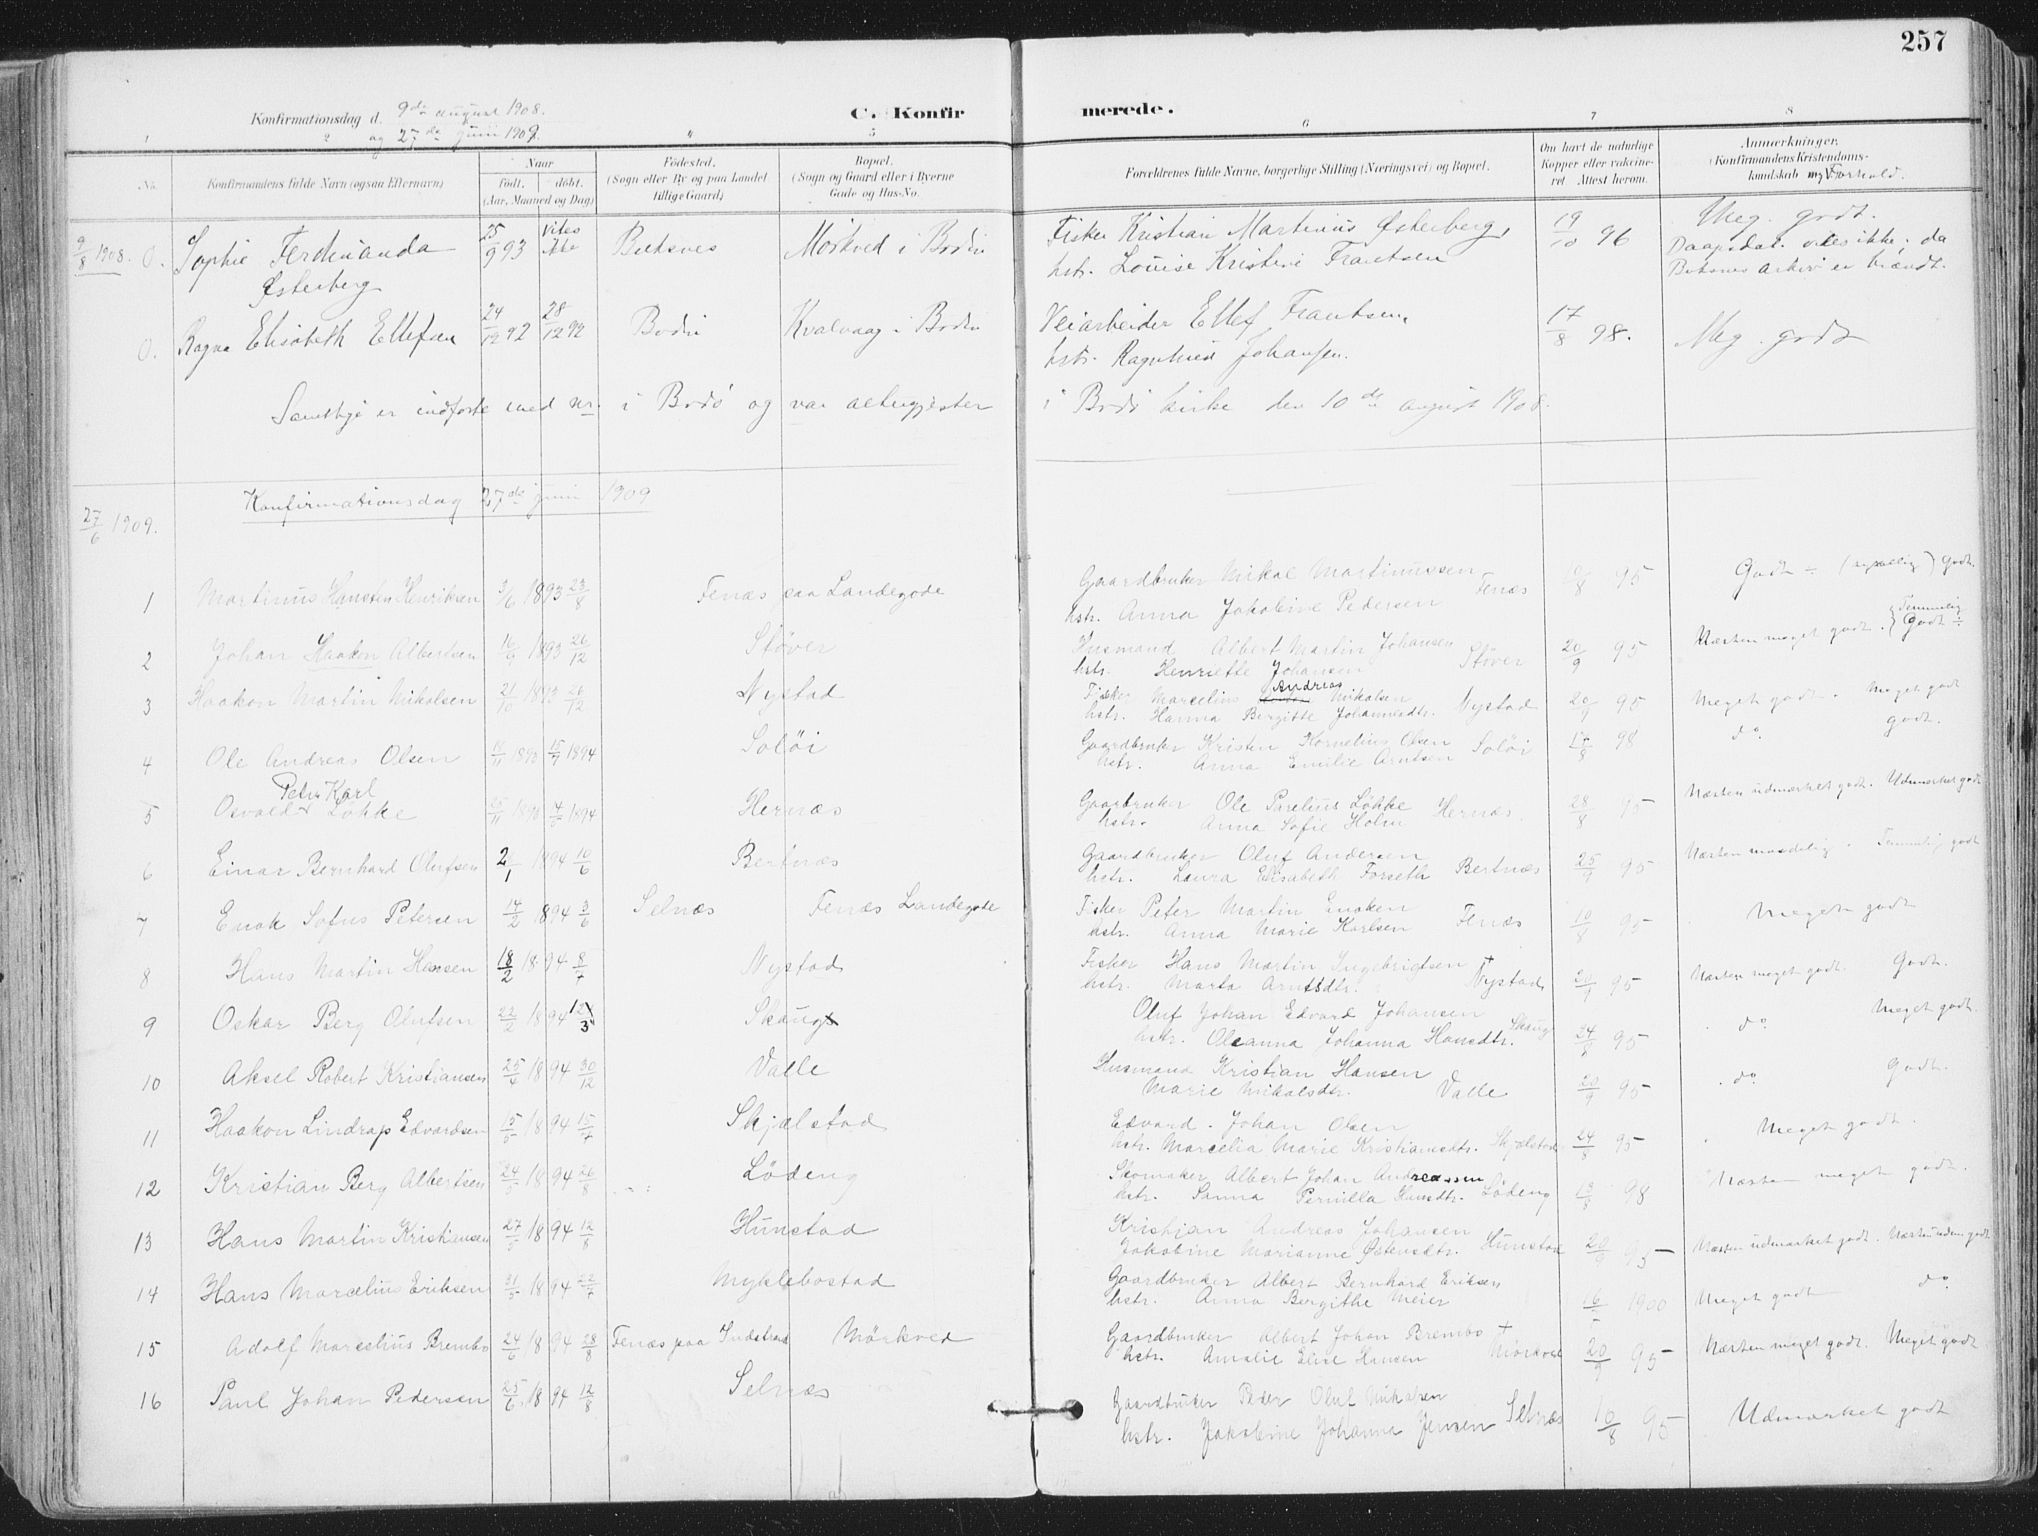 257
Konfirmationsdag d. 9de august 1908. C. Konfirmerede.
og 27de juni 1909.
1 2 5 6 7 8
No. Konfirmandens fulde Navn (ogsaa Efternavn) Naar født. døbt. (Aar, Maaned og Dag) Fødested. (Sogn eller By og paa Landet tillige Gaard) Bopæl. (Sogn og Gaard eller i Byerne Gade og Hus-No. Forældrenes fulde Navne, borgerlige Stilling (Næringsvei) og Bopæl. Om havt de naturlige Kopper eller vakcineret. Attest herom. Anmærkninger. (Konfirmandens Kristendomskundskab og Forhold.
9/8 1908. 0. Sophie Ferdinanda Østerberg 25/9 93 Vites ikke Buksnes Mørkved i Bodin Fisker Kristian Martinius Østerberg, 19/10 96 Meg. godt.
hstr. Louise Kristine Frantsen Daapsdat. vites ikke; da Buksnes arkiv er brændt.
0. Ragna Elisabeth Ellefsen 24/12 92 28/12 92 Bodin Kvalvaag i Bodin Veiarbeider Ellef Frantsen, 17/8 98. Meg. godt
hstr. Ragnhild Johansen.
Samtlige er indførte med nr. i Bodø og var altergjester i Bodø kirke den 10de august 1908.
27/6 1909. Konfirmationsdag 27de juni 1909
1 Martinus Hansten Henriksen 3/6 1893 23/8 Fenæs paa Landegode Gaardbruker Mikal Martinussen Fenæs 10/8 95 Godt ÷ godt.
hstr. Anna Jakobine Pedersen
2 Johan Haakon Albertsen 16/9 1893 26/12 Støver Husmand Albert Martin Johansen Støver 20/9 95 Næsten meget godt. Temmelig Godt ÷
hstr. Henriette Johansen
3 Haakon Martin Mikalsen 21/10 1893 26/12 Nystad Fisker Marcelius Andreas Mikalsen Nystad 20/9 95 Meget godt. Meget godt
hstr. Hanna Bergitte Johannesdtr.
4 Ole Andreas Olsen 1893 15/7 1894 Soløi Gaardbruker Kristen Kornelius Olsen Soløi 17/8 98 do. godt.
hstr. Anna Emilie Arntsen
5 Osvald Peter Karl Løkke 1893 1894 Hernæs Gaarbruker Ole Parelius Løkke Hernæs. 28/8 95 Næsten udmærket godt. Udmærket godt
hstr. Anna Sofie Holm
6 Einar Bernhard Olufsen 2/1 1894 10/6 Bertnæs Gaardbruker Oluf Andersen Bertnæs 25/9 95 Næsten maadelig. Temmelig godt
hstr. Laura Elisabeth Forseth
7 Enok Sofus Petersen 14/2 1894 3/6 Selnæs Fenæs Landegode Fisker Peter Martin Enoksen Fenæs 10/8 95 Meget godt
hstr. Anna Marie Karlsen
8 Hans Martin Hansen 18/2 1894 8/7 Nystad Fisker Hans Martin Ingebrigtsen + Nystad 20/9 95 Næsten meget godt. Godt.
hstr. Marta Arntsdtr.
9 Oskar Berg Olufsen 22/2 1894 12/3 Skaug Oluf Johan Edvard Johansen Skaug 24/8 95 do Meget godt.
hstr. Oleanna Johanna Hansdtr.
10 Aksel Robert Kristiansen 25/4 1894 30/12 Valle Husmand Kristian Hansen Valle 20/9 95 do Godt.
Marie Mikalsdtr.
11 Haakon Lindrup Edvardsen 15/5 1894 15/7 Skjælstad Edvard Johan Olsen Skjælstad 24/8 95 Meget godt.
hstr. Marcelia Marie Kristiansdtr.
12 Kristian Berg Albertsen 24/5 1894 26/8 Løding Skomaker Albert Johan Andreassen Løding 13/8 98 Næsten meget godt.
hstr. Sanna Pernilla Hansdtr.
13 Hans Martin Kristiansen 27/5 1894 12/8 Hunstad Kristjan Andreas Johansen Hunstad 20/9 95 Næsten udmærket godt. Næsten udm godt
Jakobine Marianne Østensdtr.
14 Hans Marcelius Eriksen 31/5 1894 22/7 Myklebostad Gaardbruker Albert Bernhard Eriksen 16 1900 Meget godt do
hstr. Anna Bergithe Meier
15 Adolf Marselius Brembo 24/6 1894 28/8 Fenæs paa Mørkved Gaardbruker Albert Johan Brembo + Mørkved 20/9 95 Næsten meget godt. Meget godt
hstr. Amalie Elise Hansen
16 Paul Johan Pedersen 25/6 1894 12/8 Selnæs Gaardbruker Peder Oluf Mikalsen Selnæs 10/8 95 Udmærket godt
hstr. Jakobine Johanna Jensen